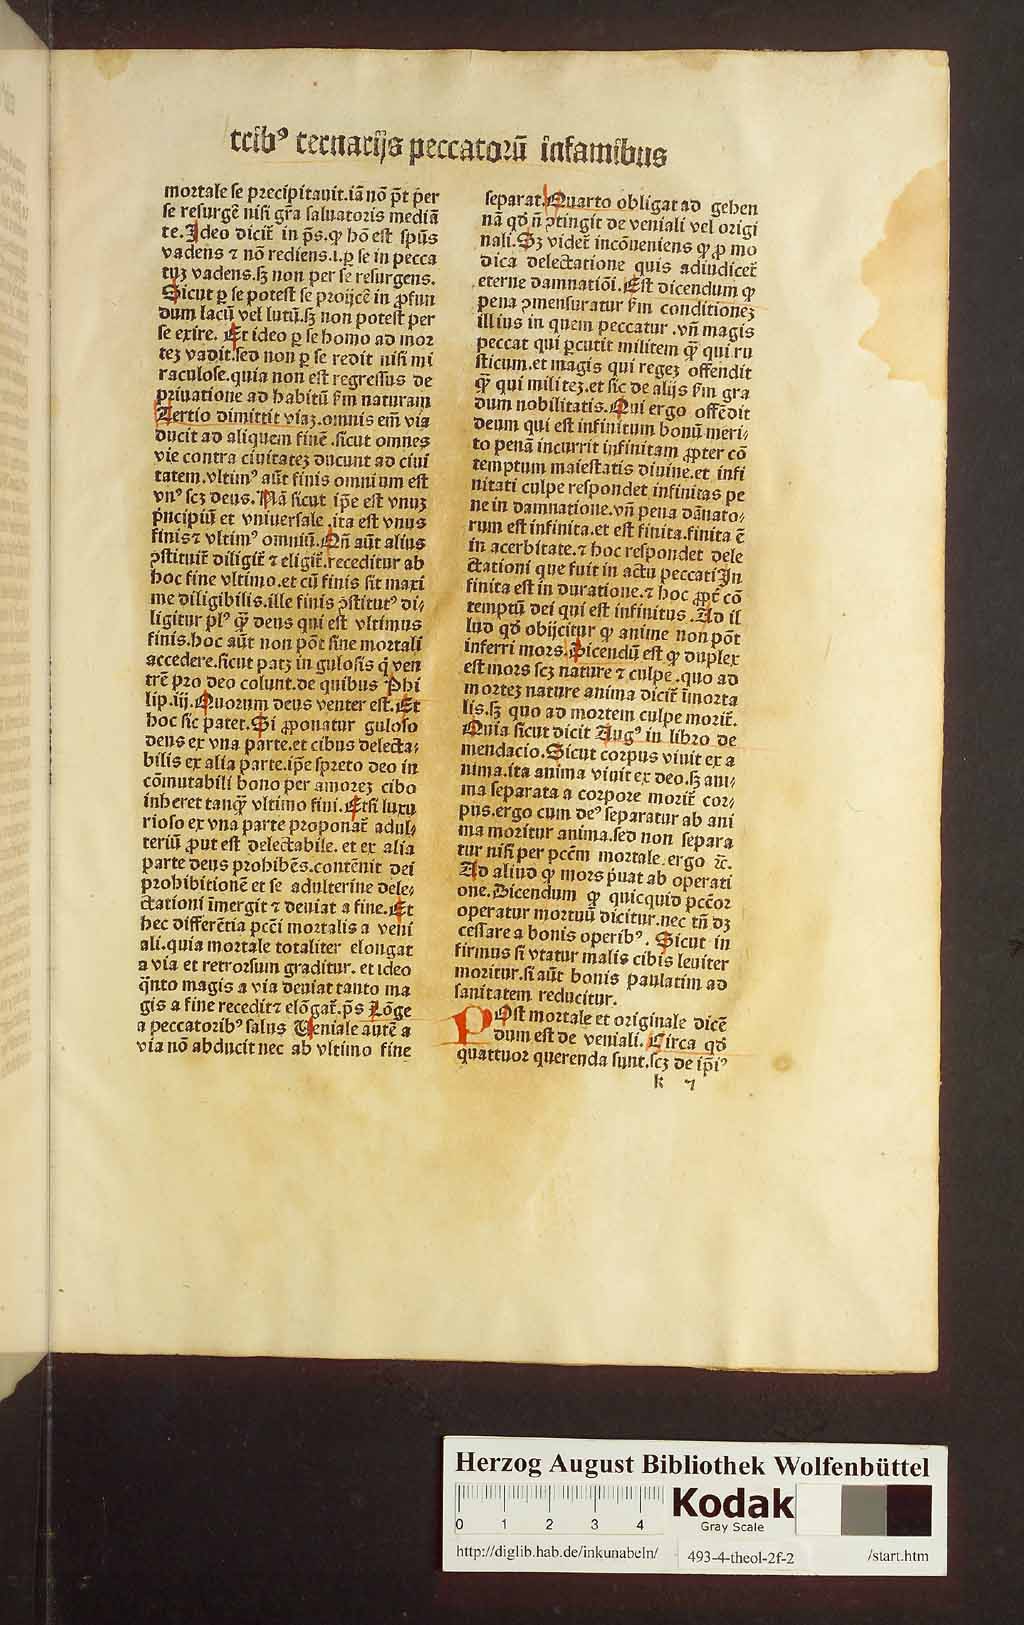 trib⁹ ternarijs peccatoꝝ̄ infamibus
mortale se precipitauit.iā nō pōt per
se resurgē nisi gr̄a saluatoris mediā
te.Ideo dicit̄ in ps̄.ꝙ hō est spūs
vadens ⁊ nō rediens.i.ꝑ se in pecca
tuꝫ vadens.sꝫ non per se resurgens.
Sicut ꝑ se potest se proijcē in ꝓfun
dum lacū vel lutū.sꝫ non potest per
se exire. Et ideo ꝑ se homo ad mor
teꝫ vadit.sed non ꝑ se redit nisi mi
raculose.quia non est regressus de
priuatione ad habitū ẜm naturam
Tertio dimittit viaꝫ.omnis em̄ via
ducit ad aliquem finē .sicut omnes
vie contra ciuitateꝫ ducunt ad ciui
tatem.vltim⁹ aūt finis omnium est
vn⁹ scꝫ deus. Nā sicut ip̄e est vnuꝫ
pͥncipiū et vniuersale .ita est vnus
finis⁊ vltim⁹ omniū.Qn̄ aūt alius
ꝯstituit̄ diligit̄ ⁊ eligit̄.receditur ab
hoc fine vltimo.et cū finis sit maxi
me diligibilis.ille finis ꝯstitut⁹ di⸗
ligitur pl⁹ ꝙ̄ deus qui est vltimus
finis.hoc aūt non pōt sine mortali
accedere.sicut patꝫ in gulosis qͥ ven
trē pro deo colunt.de quibus Phi
lip.iij.Quorum deus venter est.Et
hoc sic patet.Si ꝓponatur guloso
deus ex vna parte.et cibus delecta⸗
bilis ex alia parte.ip̄e spreto deo in
cōmutabili bono per amoreꝫ cibo
inheret tanꝙ̄ vltimo fini.Etsi luxu
rioso ex vna parte proponat̄ adul⸗
teriū ꝓut est delectabile. et ex alia
parte deus prohibēs.contēnit dei
prohibitionē et se adulterine dele⸗
ctationi īmergit ⁊ deuiat a fine.Et
hec differētia pcc̄i mortalis a veni
ali.quia mortale totaliter elongat
a via et retrorsum graditur. et ideo
qͣnto magis a via deuiat tanto ma
gis a fine recedit⁊ elōgat̄.ps̄ Lōge
a peccatorib⁹ salus Veniale autē a
via nō abducit nec ab vltimo fine
separat.Quarto obligat ad gehen
nā qd̄ n̄ ꝯtingit de veniali vel origi
nali.Sꝫ videt̄ incōueniens ꝙ ꝓ mo
dica delectatione quis adiudicet̄
eterne damnatiōi.Est dicendum ꝙ
pena ꝯmensuratur ẜm conditioneꝫ
illius in quem peccatur .vn̄ magis
peccat qui ꝑcutit militem ꝙ̄ qui ru
sticum.et magis qui regeꝫ offendit
ꝙ̄ qui militeꝫ.et sic de alijs ẜm gra
dum nobilitatis.Qui ergo offēdit
deum qui est infinitum bonū meri⸗
to penā incurrit infinitam ꝓpter cō
temptum maiestatis diuine.et infi
nitati culpe respondet infinitas pe
ne in damnatione.vn̄ pena dānato⸗
rum est infinita.et est finita.finita ē
in acerbitate.⁊ hoc respondet dele
ctationi que fuit in actu peccati.In
finita est in duratione.⁊ hoc ꝓpt̄ cō
temptū dei qui est infinitus .Ad il
lud qd̄ obijcitur ꝙ anime non pōt
inferri mors.Dicendū est ꝙ duplex
est mors scꝫ nature ⁊ culpe.quo ad
morteꝫ nature anima dicit̄ īmorta
lis.sꝫ quo ad mortem culpe morit̄.
Quia sicut dicit Aug⁹ in libro de
mendacio.Sicut corpus viuit ex a
nima.ita anima viuit ex deo.sꝫ ani⸗
ma separata a corpore morit̄ cor⸗
pus.ergo cum de⁹ separatur ab ani
ma moritur anima.sed non separa
tur nisi per pcc̄m mortale.ergo ⁊c̄.
Ad aliud ꝙ mors pͥuat ab operati
one.Dicendum ꝙ quicquid pcc̄or
operatur mortuū dicitur.nec tn̄ dꝫ
cessare a bonis operib⁹. Sicut in
firmus si vtatur malis cibis leuiter
moritur.si aūt bonis paulatim ad
sanitatem reducitur.
POst mortale et originale dicē
dum est de veniali. Circa qd̄
quattuor querenda sunt.scꝫ de ip̄i⁹
k ⁊
Herzog August Bibliothek Wolfenbüttel
0 1 2 3 4
Kodak
Gray Scale
http://diglib.hab.de/inkunabeln/ 493-4-theol-2f-2 /start.htm